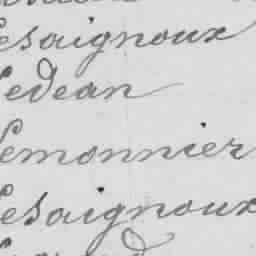 Lesaignoux
Ledean
Lemonnier
Lesaignoux